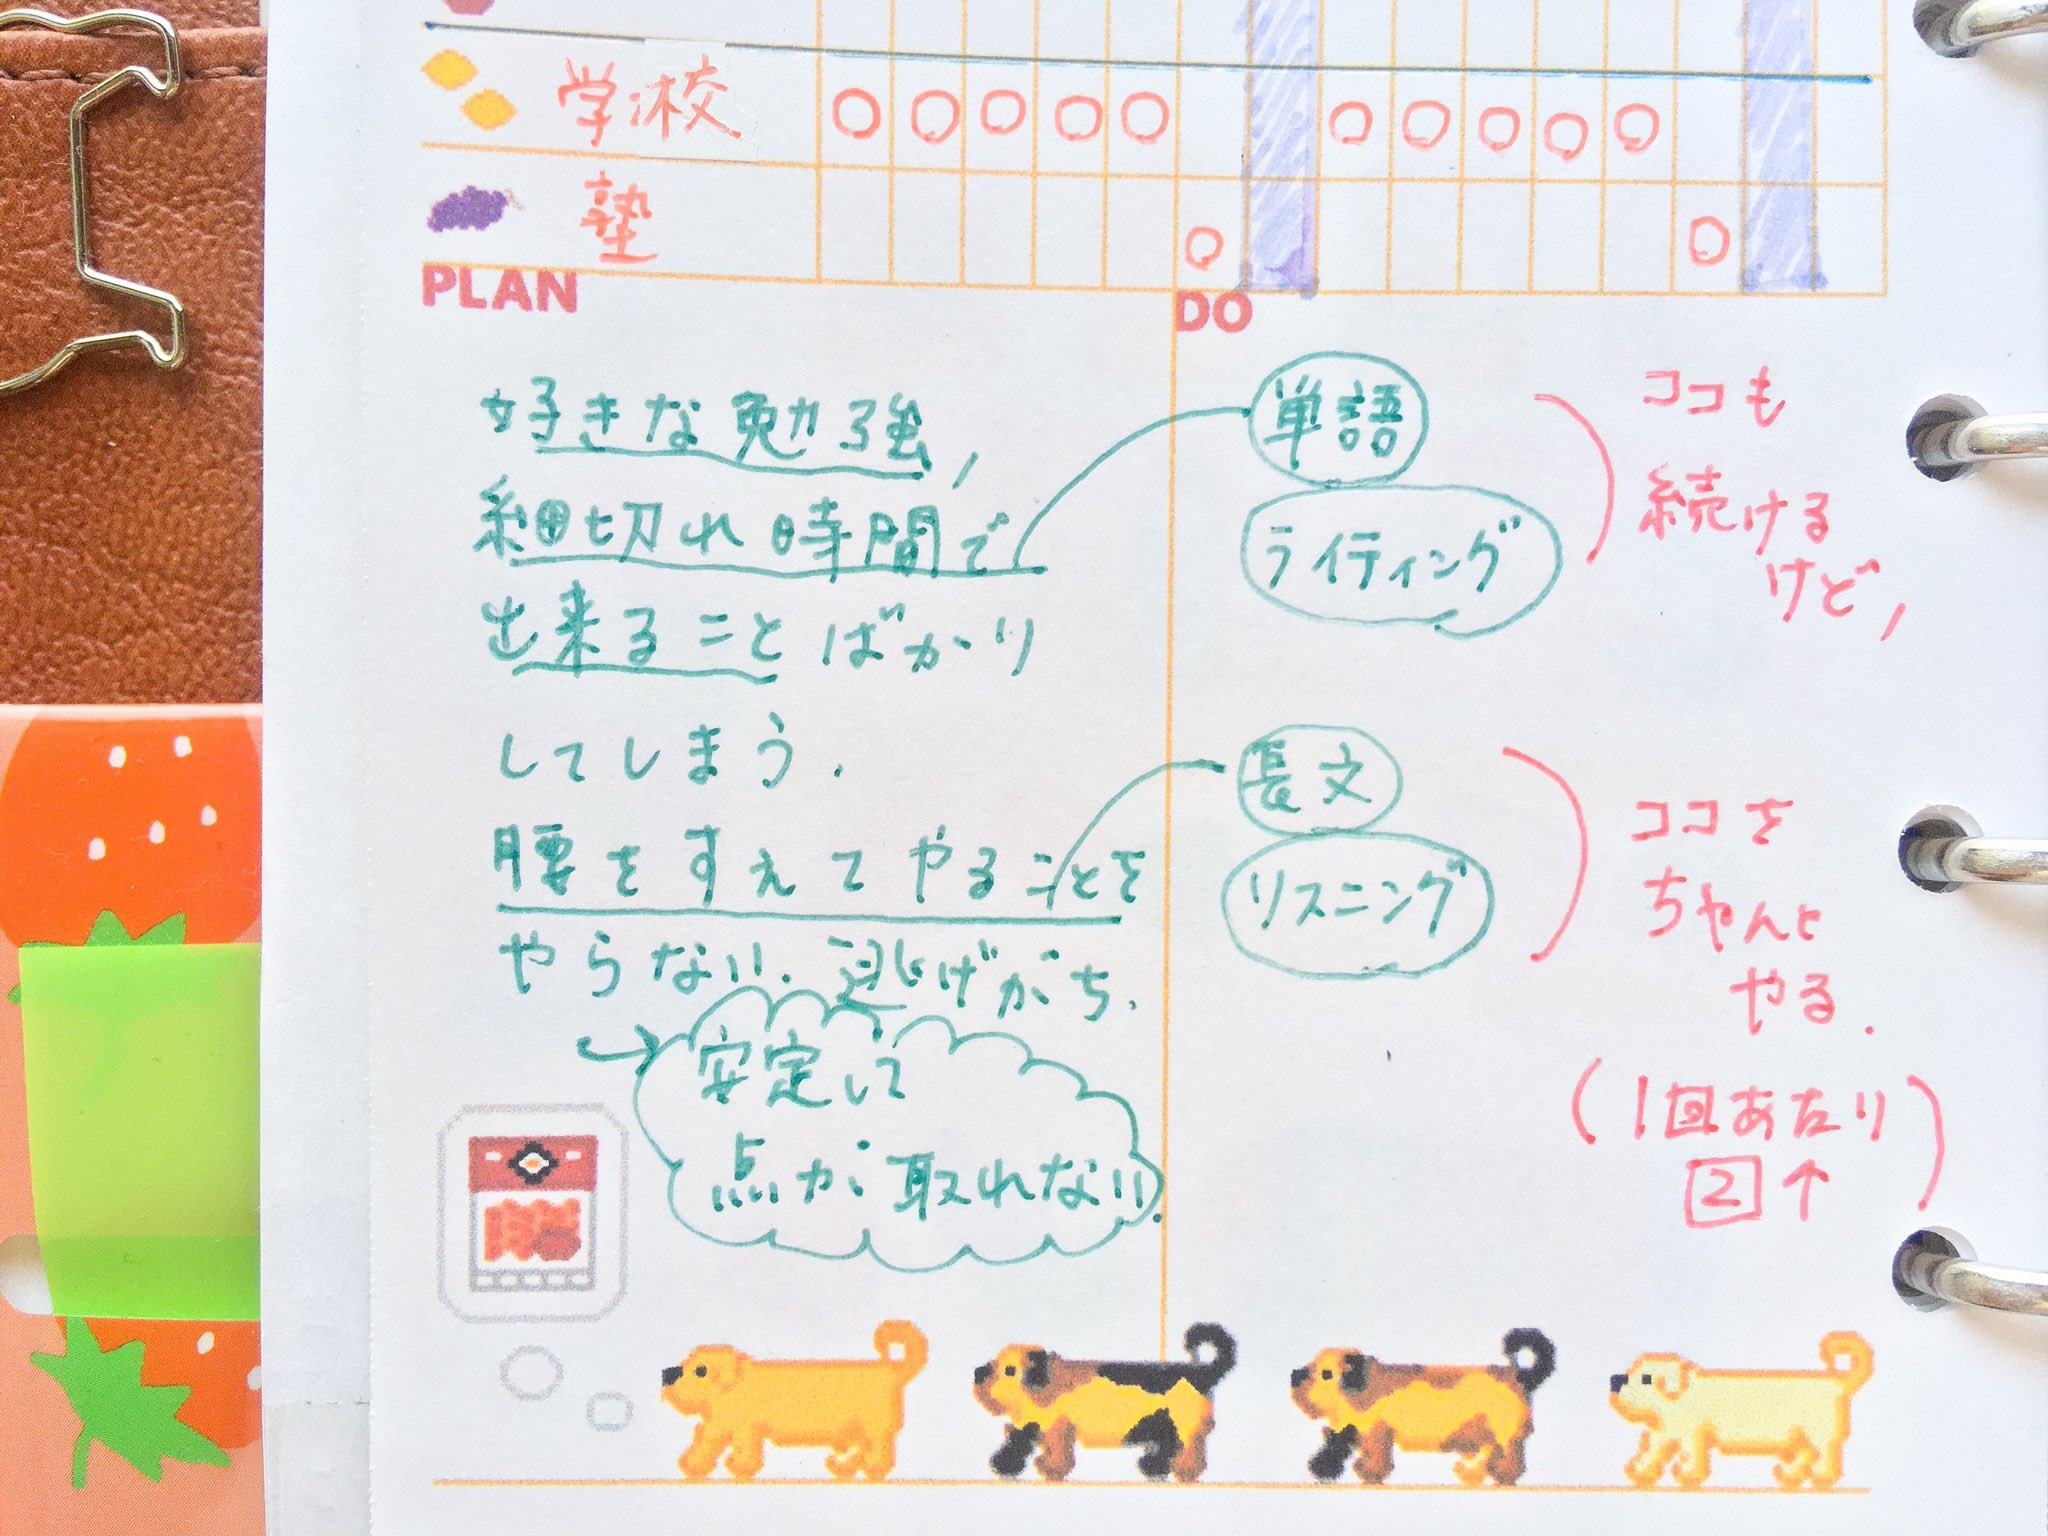 学校
塾
PLAN
好きな勉強,
細切れ時間で
出来ることばかり
してしまう.
腰をすえてやることを
やらない.逃げがち.
→安定して
点が取れない.
DO
単語
ライティング
ココも
続ける
けど,
長文
リスニング
ココを
ちゃんと
やる.
(1回あたり
2↑)